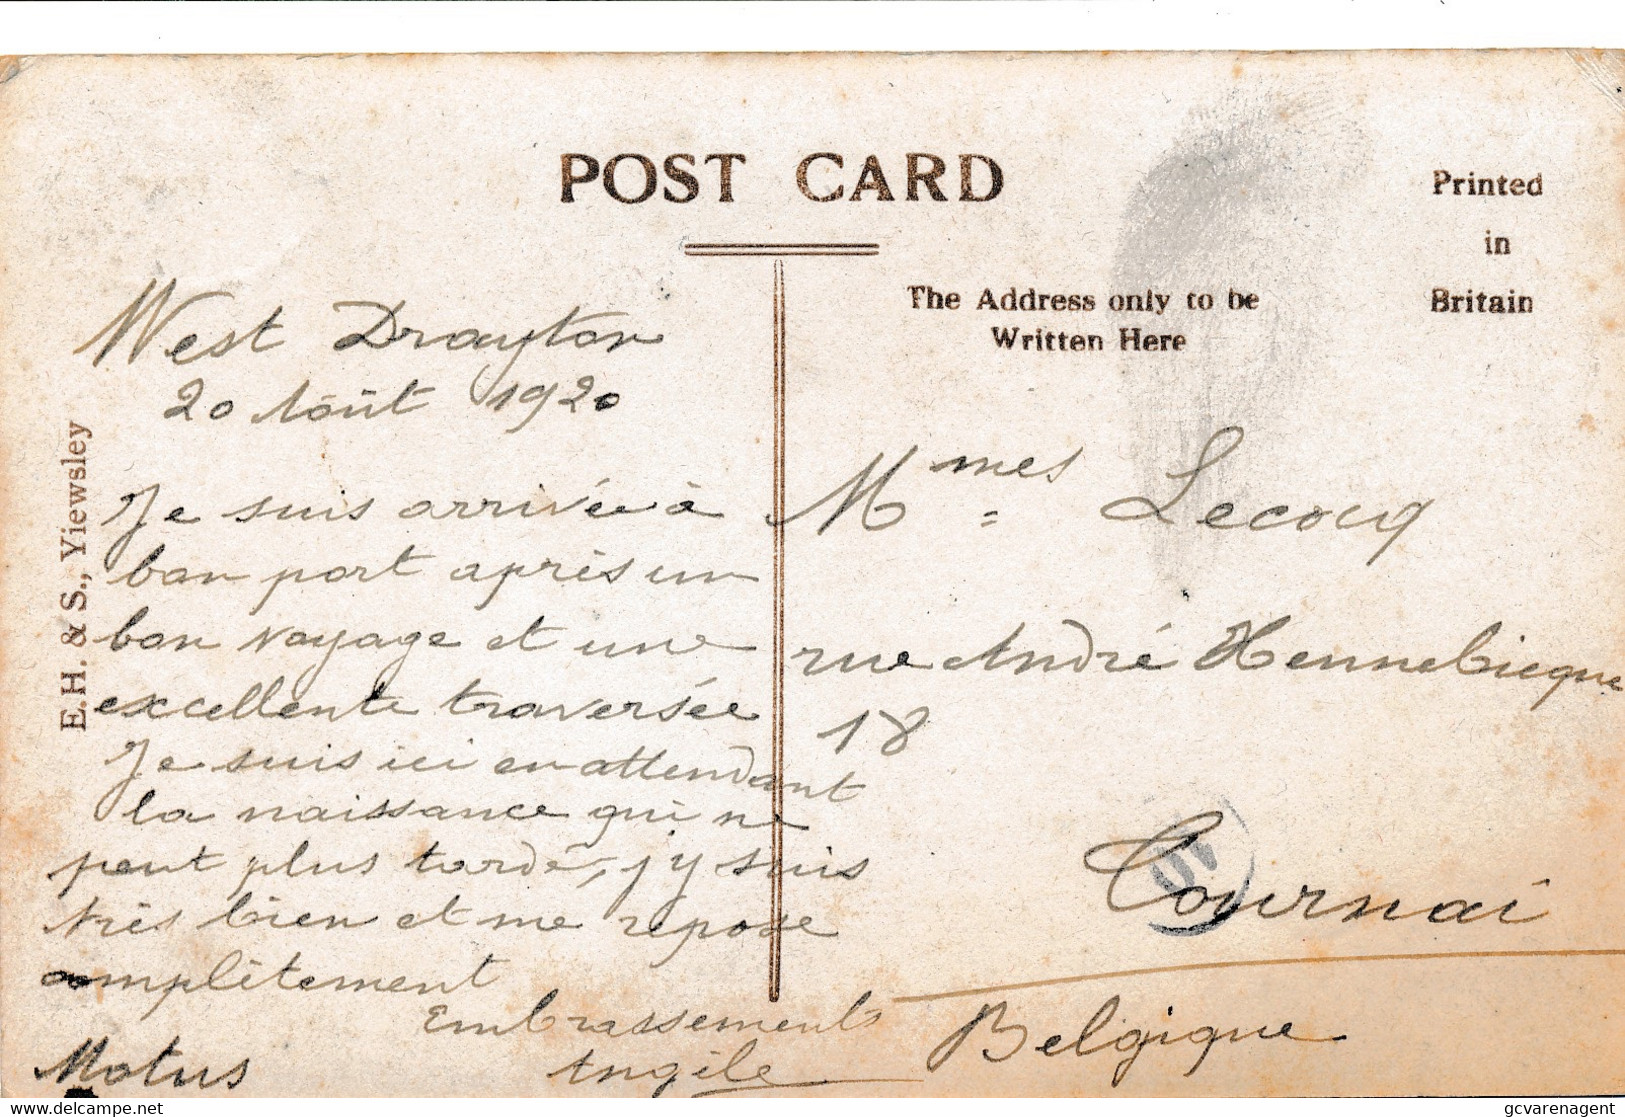 POST CARD
Printed
in
Britain
The Address only to be
Written Here
E.H. & S., Yiewsley
West Drayton
20 Août 1920
Je suis arrivée à
bon port après un
bon voyage et une
excellente traversée
Je suis ici en attendant
la naissance qui ne
peut plus tarder, j'y suis
très bien et me repose
complètement
Embrassements
Motus
Mmes Lecocq
rue André Hennebicque
18
Tournai
Belgique
10
gcvarenagent
delcampe.net